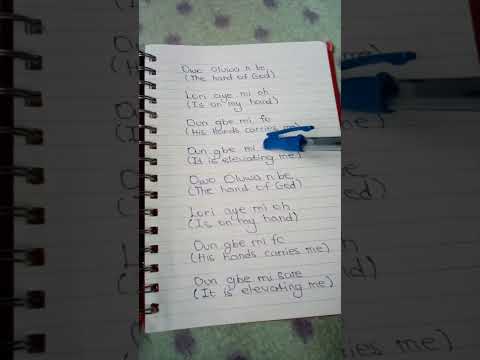 Owo Oluwa n be
(The hand of God)
Lori aye mi oh
(Is on my hand)
Oun gbe mi fo
(His hands carries me)
Oun gbe mi
(It is elevating me)
Owo Oluwa n be
(The hand of God)
Lori aye mi oh
(Is on my hand)
Oun gbe mi fo
(His hands carries me)
Oun gbe mi sare
(It is elevating me)